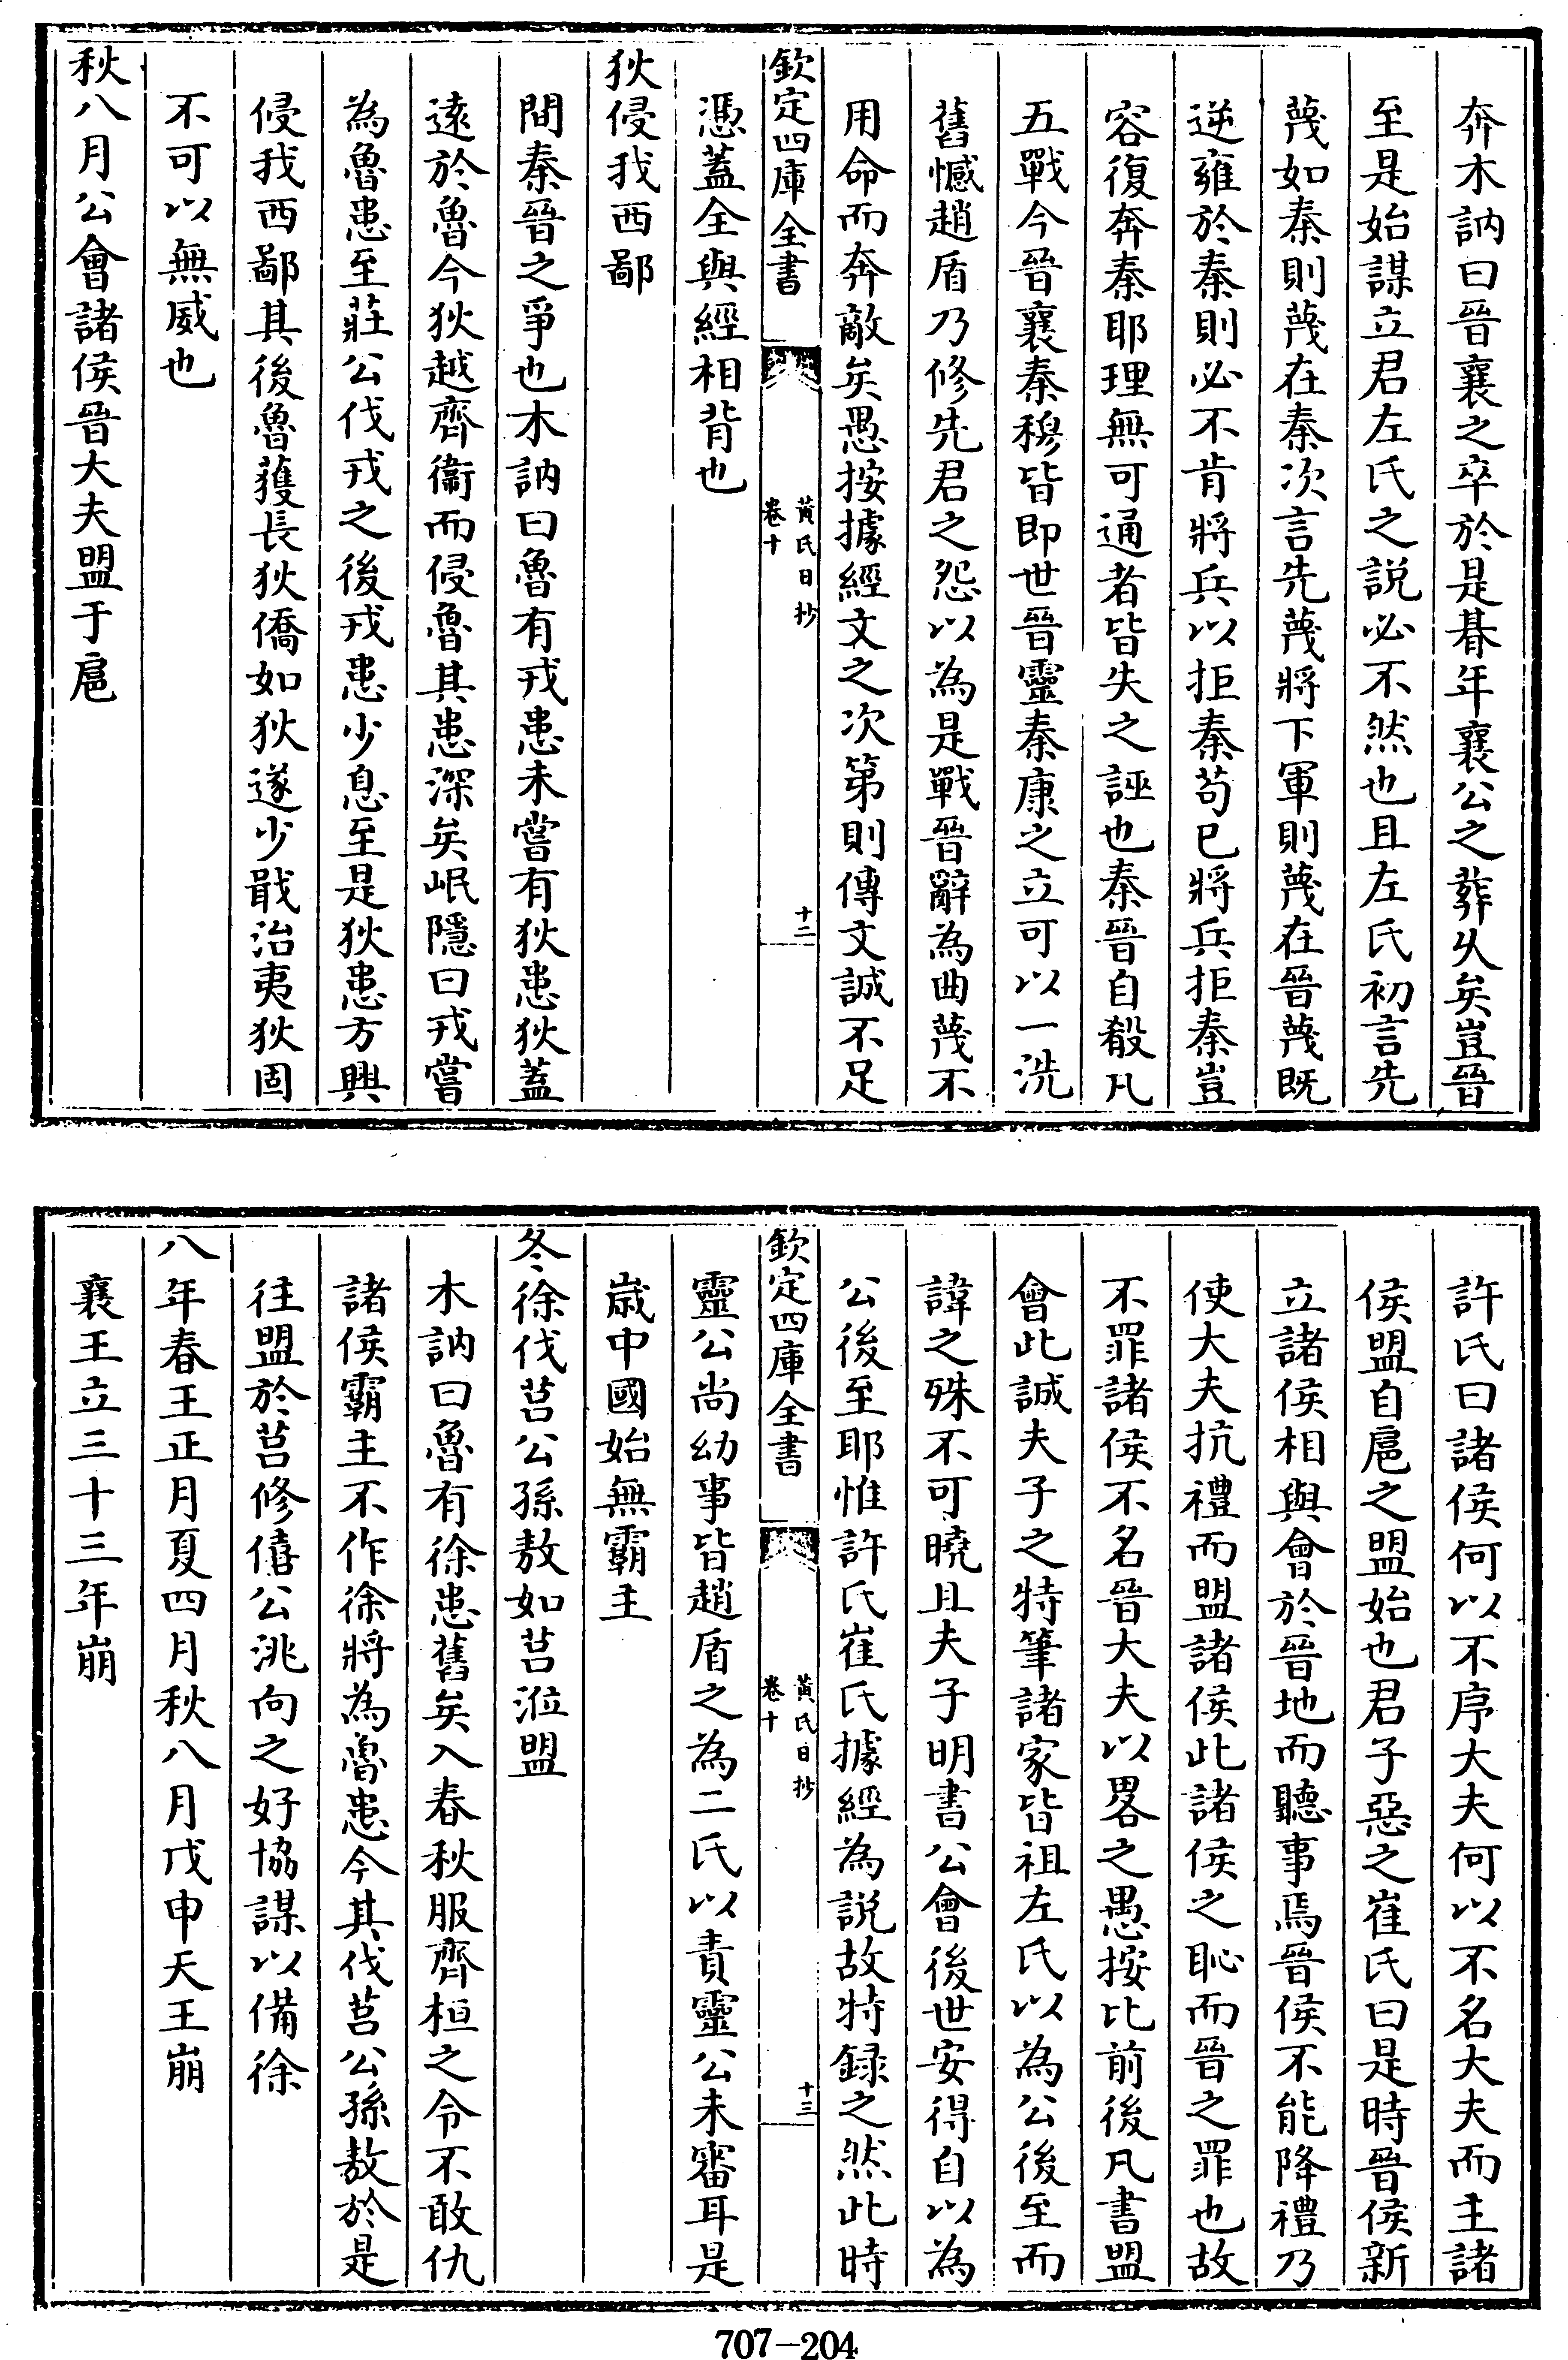 奔木訥曰晉襄之卒於是朞年襄公之葬乆矣豈晉
至是始謀立君左氏之説必不然也且左氏初言先
蔑如秦則蔑在秦次言先蔑將下軍則蔑在晉蔑既
逆雍於秦則必不肯將兵以拒秦苟已將兵拒秦豈
容復奔秦耶理無可通者皆失之誣也秦晉自殽凡
五戰今晉襄秦穆皆即世晉靈秦康之立可以一洗
舊憾趙盾乃修先君之怨以為是戰晉辭為曲蔑不
用命而奔敵矣愚按據經文之次第則傳文誠不足
欽定四庫全書
黃氏日抄
卷十
十二
憑蓋全與經相背也
狄侵我西鄙
間秦晉之爭也木訥曰魯有戎患未嘗有狄患狄蓋
逺於魯今狄越齊衞而侵魯其患深矣岷隱曰戎嘗
為魯患至莊公伐戎之後戎患少息至是狄患方興
侵我西鄙其後魯獲長狄僑如狄遂少戢治夷狄固
不可以無威也
秋八月公會諸侯晉大夫盟于扈
許氏曰諸侯何以不序大夫何以不名大夫而主諸
侯盟自扈之盟始也君子惡之崔氏曰是時晉侯新
立諸侯相與會於晉地而聽事焉晉侯不能降禮乃
使大夫抗禮而盟諸侯此諸侯之恥而晉之罪也故
不罪諸侯不名晉大夫以畧之愚按比前後凡書盟
會此誠夫子之特筆諸家皆祖左氏以為公後至而
諱之殊不可曉且夫子明書公會後世安得自以為
公後至耶惟許氏崔氏據經為説故特録之然此時
欽定四庫全書
黃氏日抄
卷十
十三
靈公尚幼事皆趙盾之為二氏以責靈公未審耳是
嵗中國始無霸主
冬徐伐莒公孫敖如莒涖盟
木訥曰魯有徐患舊矣入春秋服齊桓之令不敢仇
諸侯霸主不作徐將為魯患今其伐莒公孫敖於是
往盟於莒修僖公洮向之好協謀以備徐
八年春王正月夏四月秋八月戊申天王崩
襄王立三十三年崩
707-204